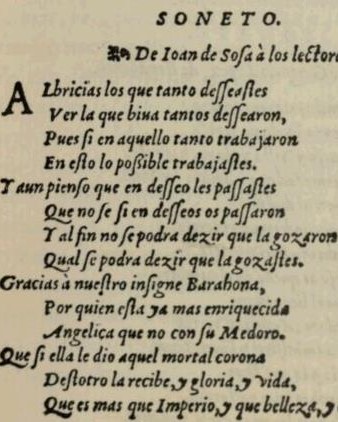 SONETO.
De Ioan de Sosa à los lectore
ALbricias los que tanto desseastes
Ver la que biua tantos dessearon,
Pues si en aquello tanto trabajaron
En esto lo possible trabajastes.
Y aun pienso que en desseo les passastes
Que no se si en desseos os passaron
Y al fin no se podra dezir que la gozaron
Qual se podra dezir que la gozastes.
Gracias à nuestro insigne Barahona,
Por quien esta ya mas enriquecida
Angelica que no con su Medoro.
Que si ella le dio aquel mortal corona
Destotro la recibe, y gloria, y vida,
Que es mas que Imperio, y que belleza, y